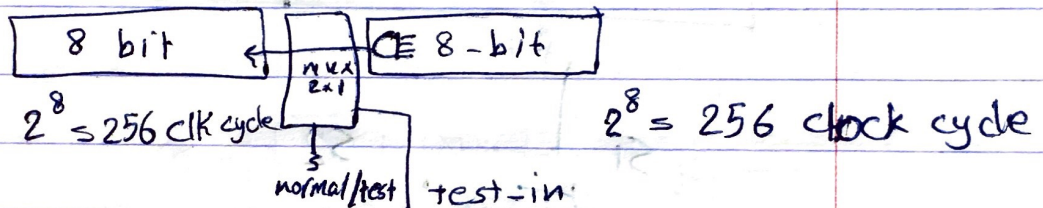 8 bit
mux
2x1
CE 8-bit
2⁸ = 256 clk cycle
2⁸ = 256 clock cycle
S
normal/test
test-in